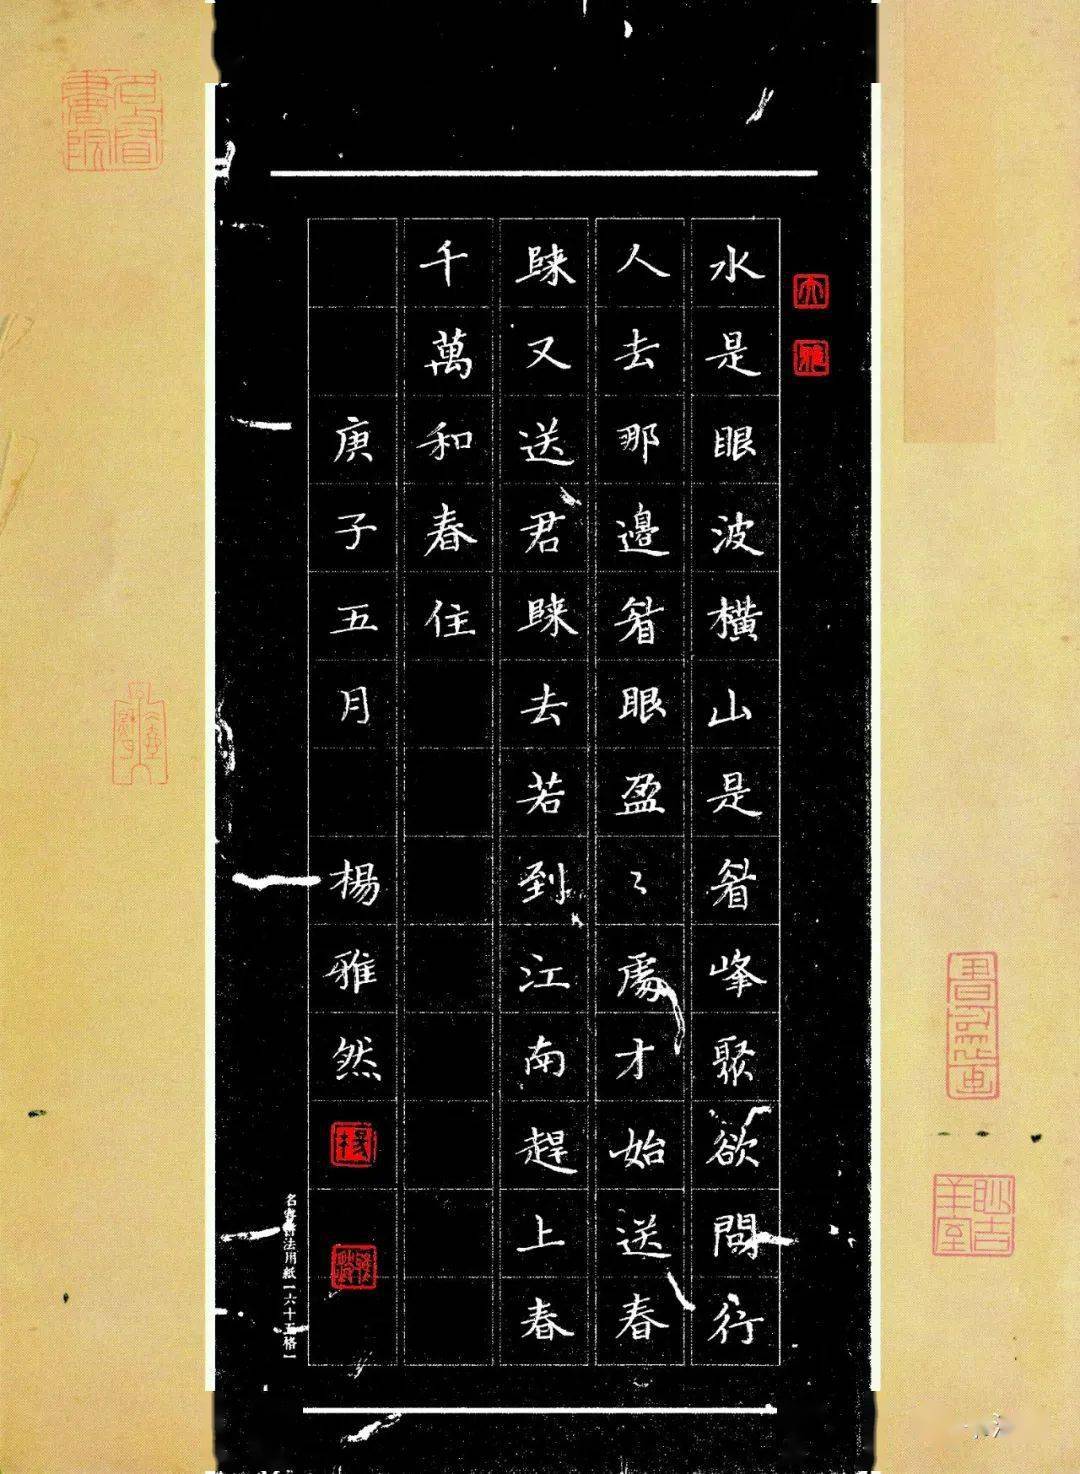 水是眼波橫山是眉峰聚欲問行
人去那邊眉眼盈〻處才始送春
歸又送君歸去若到江南趕上春
千萬和春住
庚子五月 楊雅然
楊
名睿書法用紙【六十五格】